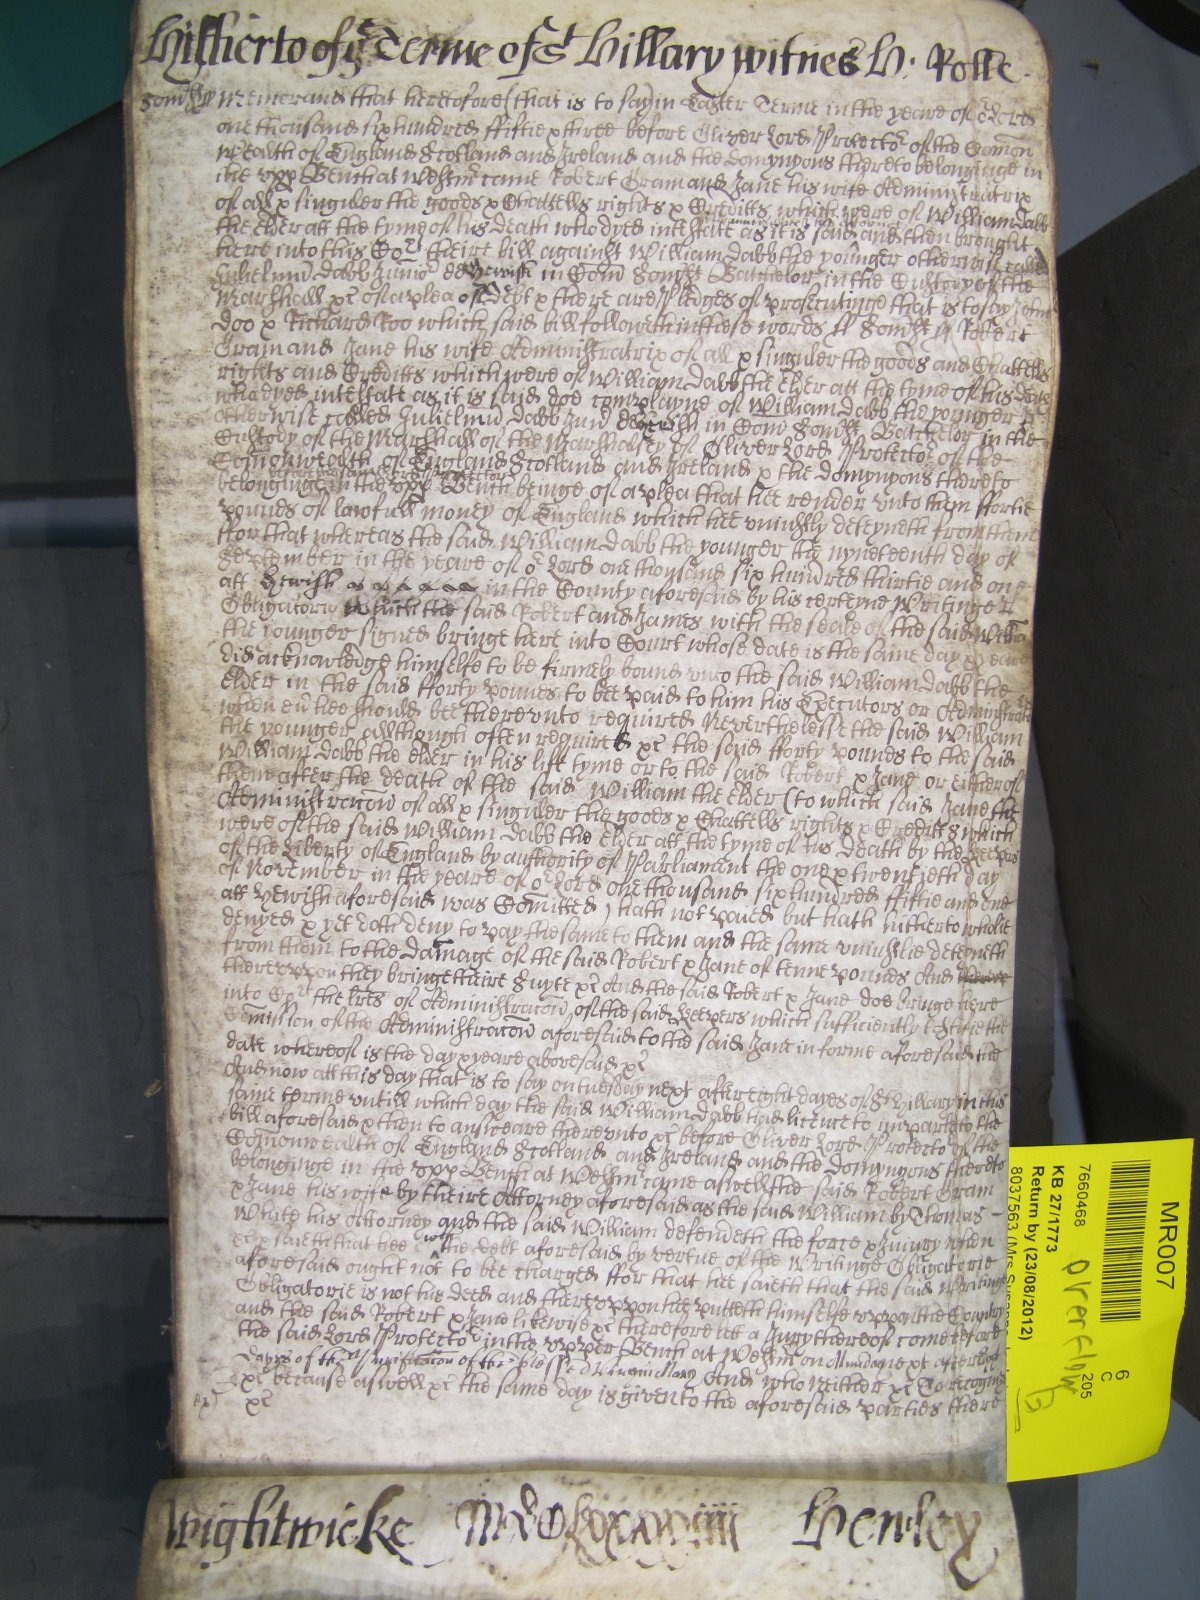 Hitherto of ye Terme of St Hillary witnes H: Rolle
Som'st ss Memorand that heretofore (that is to say) in Easter Terme in the yeare of or Lord
one thousand six hundred fiftie & three before Oliver Lord Protector of the Comon
wealth of England Scotland and Ireland and the domynyons thereto belonginge in
the upp Bench at Westmr came Robert Gram and Jane his wife Administratrix
of all & singuler the goods & Chattells rights & Creditts which were of William Dabb
the elder att the tyme of his death who dyed intestate as it is said and then brought
here into this Cort theire bill against William Dabb the younger otherwise called
Gulielmu Dabb Junior de Hewish in Com Somst Batchelor in the Custody of the
Marshall &c of a plea of Debt & there are Pledges of prosecutinge that is to say John
Doo & Richard Roo which said bill followeth in these words ss Somst ss Robert
Gram and Jane his wife Administratrix of all & singuler the goods and Chattells
rights and Creditts which were of William Dabb the elder att the tyme of his death
who dyed intestate as it is said doe complayne of William Dabb the younger
otherwise called Gulielmu Dabb Jun de Hewish in Com Somst Batchelor in the
Custody of the Marshall of the Marshalsey of Oliver Lord Protector of the
Comonwealth of England Scotland and Ireland & the domynyons thereto
belonginge in the upp Bench beinge of a plea that hee render unto them fortie
pounds of lawfull money of England which hee uniustly deteyneth from them
ffor that whereas the said William Dabb the younger the nyneteenth day of
September in the yeare of or Lord one thousand six hundred thirtie and one
att Hewish in the County aforesaid by his certeyne Writinge
Obligatorie which the said Robert and James with the seale of the said William
the younger signed bringe here into Court whose date is the same day & yeare
did acknowledge himselfe to be firmely bound unto the said William Dabb the
elder in the said fforty pounds to bee paid to him his Executors or Administrators
when ev hee should bee thereunto required Neverthelesse the said William
the younger allthough often required &c the said fforty pounds to the said
William Dabb the elder in his life tyme or to the said Robert & Jane or either of
them after the death of the said William the elder (to which said Jane the
Administracon of all & singuler the goods & Chattells rights & Creditts which
were of the said William Dabb the elder att the tyme of his death by the keepers
of the Liberty of England by authority of Parliament the one & twentieth day
of November in the yeare of or Lord one thousand six hundred fiftie and one
att Hewish aforesaid was Comitted) hath not payed but hath hitherto wholie
denyed & yet doth deny to pay the same to them and the same uniustlie deteyneth
from them to the damage of the said Robert & Jane of tenne pounds And
thereuppon they bringe theire Suyte &c And the said Robert & Jane doe bringe here
into Cort the lres of Administracon of the said keepers which sufficiently testifie the
Comission of the Administracon aforesaid to the said Jane in forme aforesaid the
date whereof is the day & yeare abovesaid &c
And now att this day that is to say on tuesday next after eight dayes of St Hillary in this
same terme untill which day the said William Dabb had licence to imparle to the
bill aforesaid & then to answeare thereunto &c before Oliver Lord Protector of the
Comonwealth of England Scotland and Ireland and the domynyons thereto
belonginge in the upp Bench at Westmr came aswell the said Robert Gram
& Jane his wife by theire Attorney aforesaid as the said William by Thomas
White his Attorney and the said William defendeth the force & Iniury when
&c & saieth that hee with the debt aforesaid by vertue of the Writinge Obligatorie
aforesaid ought not to bee charged ffor that hee saieth that the said Writinge
Obligatorie is not his deed and thereuppon hee putteth himselfe uppon the Country
and the said Robert & Jane likewise &c therefore lett a Jury thereof come before
the said Lord Protector in the upper Bench at Westmr on Munday next after
dayes of the Purificacon of the blessed Virgin Mary And who neither &c To recognize
&c because aswell &c the same day is given to the aforesaid parties there
&c
Wightwicke Henley
MR007
6
C
205
7660468
KB 27/1773
Return by (23/08/2012)
overflow